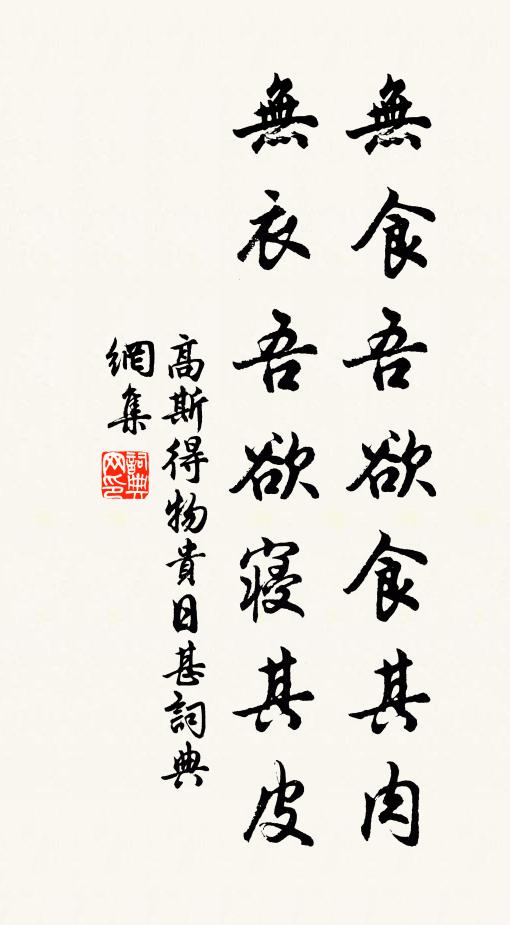 無食吾欲食其肉
無衣吾欲寢其皮
高斯得物貴日甚詞典
網集
詞典
网印